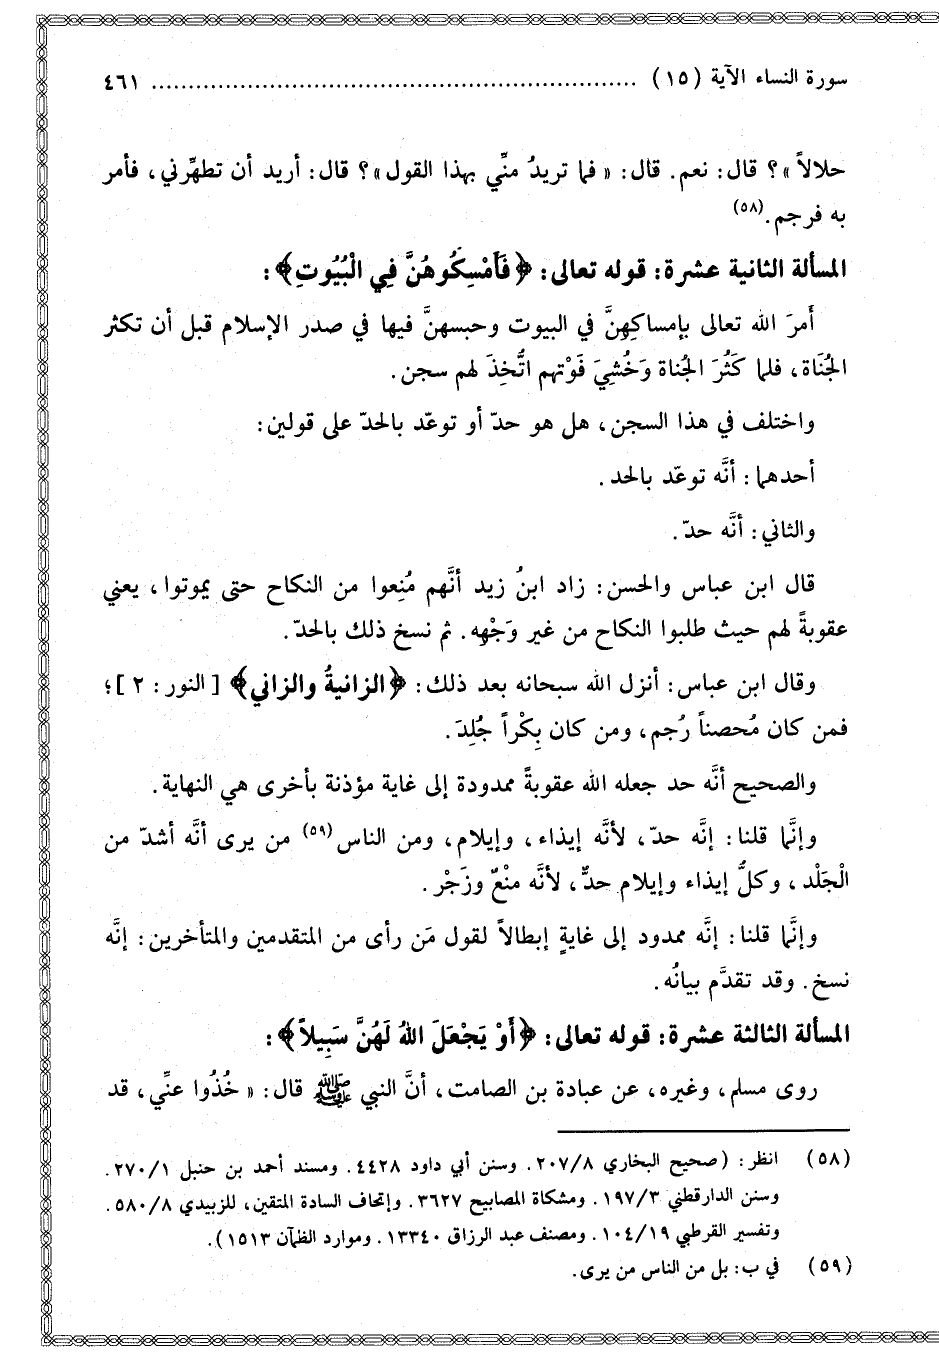 سورة النساء الآية (١٥) ................................................................ ٤٦١
حلالاً»؟ قال: نعم. قال: «فما تريدُ منِّي بهذا القول»؟ قال: أريد أن تطهِّرني، فأمر
به فرجم.(٥٨)
المسألة الثانية عشرة: قوله تعالى: ﴿فَأَمْسِكُوهُنَّ فِي الْبُيُوتِ﴾:
أَمرَ الله تعالى بإمساكِهِنَّ في البيوت وحبسهنَّ فيها في صدر الإسلام قبل أن تكثر
الجُنَاة، فلما كَثُرَ الجُناة وَخُشِيَ فَوْتهم اتُّخِذَ لهم سجن.
واختلف في هذا السجن، هل هو حدّ أو توعّد بالحدّ على قولين:
أحدهما: أنَّه توعّد بالحد.
والثاني: أنَّه حدّ.
قال ابن عباس والحسن: زاد ابنُ زيد أنَّهم مُنِعوا من النكاح حتى يموتوا، يعني
عقوبةً لهم حيث طلبوا النكاح من غير وَجْهِه. ثم نسخ ذلك بالحدّ.
وقال ابن عباس: أنزل الله سبحانه بعد ذلك: ﴿الزانيةُ والزاني﴾ [النور: ٢]؛
فمن كان مُحصناً رُجم، ومن كان بِكْراً جُلِدَ.
والصحيح أنَّه حد جعله الله عقوبةً ممدودة إلى غاية مؤذنة بأخرى هي النهاية.
وإنَّما قلنا: إنَّه حدّ، لأنَّه إيذاء، وإيلام، ومن الناس(٥٩) من يرى أنَّه أشدّ من
الْجَلْد، وكلُّ إيذاء وإيلام حدٌّ، لأنَّه منْعٌ وزَجْر.
وإنَّما قلنا: إنَّه ممدود إلى غايةٍ إبطالاً لقول مَن رأى من المتقدمين والمتأخرين: إنَّه
نسخ. وقد تقدَّم بيانُه.
المسألة الثالثة عشرة: قوله تعالى: ﴿أَوْ يَجْعَلَ اللهُ لَهُنَّ سَبِيلاً﴾:
روى مسلم، وغيره، عن عبادة بن الصامت، أنَّ النبي ﷺ قال: «خُذُوا عنِّي، قد
(٥٨) انظر: (صحيح البخاري ٢٠٧/٨. وسنن أبي داود ٤٤٢٨. ومسند أحمد بن حنبل ٢٧٠/١.
وسنن الدارقطني ١٩٧/٣. ومشكاة المصابيح ٣٦٢٧. وإتحاف السادة المتقين، للزبيدي ٥٨٠/٨.
وتفسير القرطبي ١٠٤/١٩. ومصنف عبد الرزاق ١٣٣٤٠. وموارد الظمآن ١٥١٣).
(٥٩) في ب: بل من الناس من يرى.